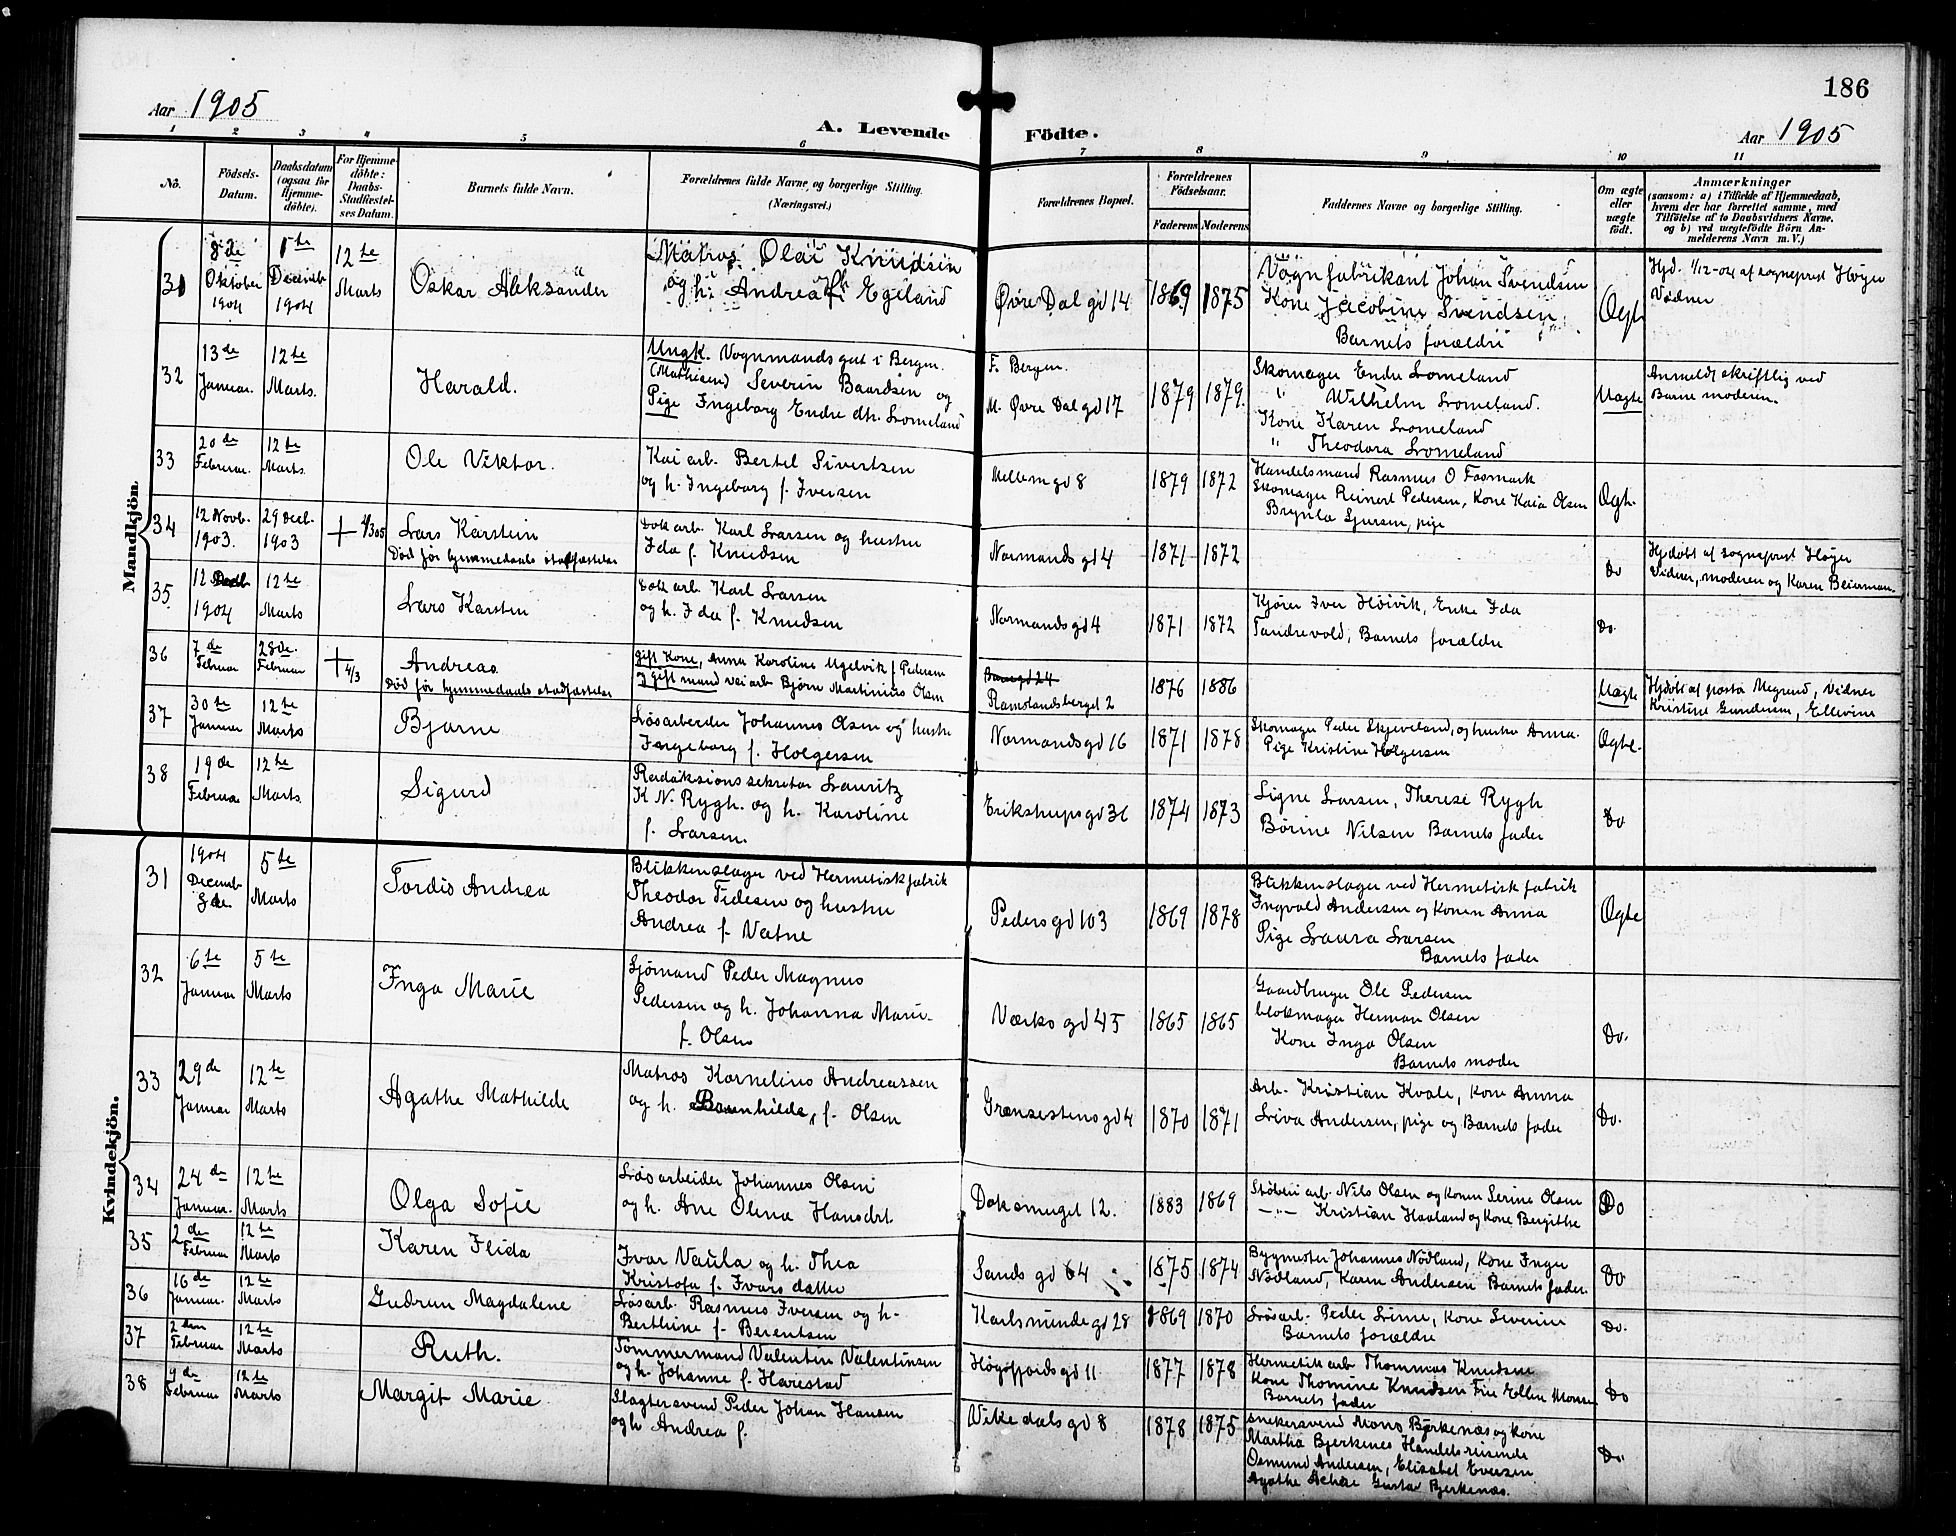 186
Aar 1905
A. Levende Födte.
Aar 1905
1 2 3 4 5 6 7 8 9 10 11
No.
Födsels-
Datum.
Daabsdatum
(ogsaa for
Hjemme-
döbte).
For Hjemme-
döbte:
Daabs-
Stadfæstel-
ses Datum.
Barnets fulde Navn.
Forældrenes fulde Navne og borgerlige Stilling.
(Næringsvei.)
Forældrenes Bopæl.
Forældrenes
Födselsaar.
Faderens Moderens
Faddernes Navne og borgerlige Stilling.
Om ægte
eller
uægte
födt.
Anmærkninger
(saasom: a) i Tilfælde af Hjemmedaab,
hvem der har forrettet samme, med
Tilföielse af to Daabsvidners Navne,
og b) ved uegtefödte Börn An-
melderens Navn m. V.)
Mandkjön.
31
8de
Oktober
1904
1te
Decemb
1904
12te
Marts
Oskar Aleksander
Matros Olai Knudsen
og h. Andrea f. Egeland
Øvre Dal gd 14
1869 1875
Vognfabrikant Johan Svendsen
Kone Jacobine Svendsen
Barnets forældre
Ogte
Hjd. 1/12-04 af sogneprest Höyer
Vidner
32
13de
Januar.
12te
Marts.
Harald.
Ungk. Vognmandsgut i Bergen.
(Mathisen) Severin Baardsen og
Pige Ingeborg Endre dtr. Lomeland
F. Bergen.
M. Øvre Dal gd 17
1879 1879.
Skomager Endre Lomeland
" Wilhelm Lomeland.
Kone Karen Lomeland
" Theodora Lomeland
Uægte
Anmeldt skriftlig ved
Barnemoderen.
33
20de
Februar.
12te
Marts.
Ole Viktor.
Kaiarb. Bertel Sivertsen
og h. Ingeborg f. Iversen
Mellemgd 8
1879 1872
Handelsmand Rasmus O Fosmark
Skomager Reinert Pedersen, Kone Kaia Olsen
Sjursen, pige
Ogte.
34
12 Novb.
1903.
29 Decb.
1903
+ 4/3 05
Lars Karstein
Död før hjemmedaabs stadfæstelse
Dokarb. Karl Larsen og hustru
Ida f. Knudsen
Normandsgd 4
1871 1872
Do
Hjdöbt af sogneprest Höyer
Vidner, moderen og Karen Beierman.
35
12 Decb
1904
12te
Marts
Lars Karsten
Dokarb. Karl Larsen
og h. Ida f. Knudsen
Normandsgd 4
1871 1872
Kjører Iver Höivik, Enke Ida
Tandrevold, Barnets forældre
Do.
36
7de
Februar
28de.
Februar
+ 4/3
Andreas
Död før hjemmedaabs stadfæstelse
gift Kone, Anna Karoline Ugelvik f. Pedersen
og gift mand veiarb Bjørn Martinius Olsen
Ramslandsberget 2
1876 1886
Uægte
Hjdöbt af pastor Megrund, Vidner
Kristine Gundersen, Ellevine
37
30te
Januar
12te
Marts
Bjarne
Løsarbeider Johannes Olsen og hustru
Ingeborg f. Holgersen
Normandsgd 16
1871 1878
Skomager Peder Skjeveland, og hustru Anna.
Pige Kristine Holgersen
Ogte.
38
19de
Februar
12te
Marts.
Sigurd
Redaktionssekretær Lauritz
K N. Rygh. og h. Karoline
f. Larsen.
Erikstrupsgd 36
1874 1873
Signe Larsen, Therese Rygh
Børine Nilsen Barnets fader
Do
Kvindekjön.
31
1904
Decemb
8de
5te
Marts
Tordis Andrea
Blikkenslager ved Hermetiskfabrik
Theodor Tidesen og hustru
Andrea f. Vatne
Pedersgd 103
1869 1878
Blikkenslager ved Hermetisk fabrik
Ingvald Andersen og Konen Anna
Pige Laura Larsen
Barnets fader
Ogte
32
6te
Januar
5te
Marts
Inga Marie
Sjømand Peder Magnus
Pedersen og h. Johanna Marie
f. Olsen
Værksgd 45
1865 1865
Gaardbruger Ole Pedersen
Blokmager Herman Olsen
Kone Inga Olsen
Barnets moder
Do.
33
29de
Januar
12te
Marts
Agathe Mathilde
Matros Kornelius Andreassen
og h. f. Olsen
Grænsestensgd 4
1870 1871
Arb. Kristian Kvale, Kone Anna
Siva Andersen, pige og Barnets fader
Do.
34
24de
Januar.
12te
Marts
Olga Sofie
Løsarbeider Johannes Olsen
og h. Ane Olena Hansdtr.
Doksmuget 12.
1883 1869
Støberiarb. Nils Olsen og konen Serine Olsen
—"— Kristian Haaland og Kone Bergithe
Do
35
2den
Februar
12te
Marts
Karen Elida
Ivar Vaula og h. Thea
Kristofa f. Ivars datter
Sandsgd 64
1875 1874
Bygmester Johannes Nödland, Kone Inger
Nödland, Karen Andersen Barnets fader.
Do
36
16de
Januar.
12te
Marts
Gudrun Magdalene
Løsarb. Rasmus Iversen og h.
Berthine f. Berentsen
Karlsmindegd 28
1869 1870
Løsarb. Peder Lime, Kone Severine
Barnets forældre
Do.
37
2den
Februar
12te
Marts
Ruth.
Tømmermand Valentin Valentinsen
og h. Johanne f. Harestad
Høgsfjordsgd 11
1877 1878
Hermetikarb Thommas Knudsen
Kone Thomine Knudsen Frk Ellen Monsen
Barnets fader
Do
38
4de
Februar
12te
Marts
Margit Marie
Slagtersvend Peder Johan Hansen
og h Andrea f.
Vikedalsgd 8
1878 1875
Snekersvend Mons Bjerkenæs og kone
Martha Bjerkenes Handelsreisende
Osmund Andersen, Elisabet Evensen
Agathe Gustav Bjerkenæs.
Do